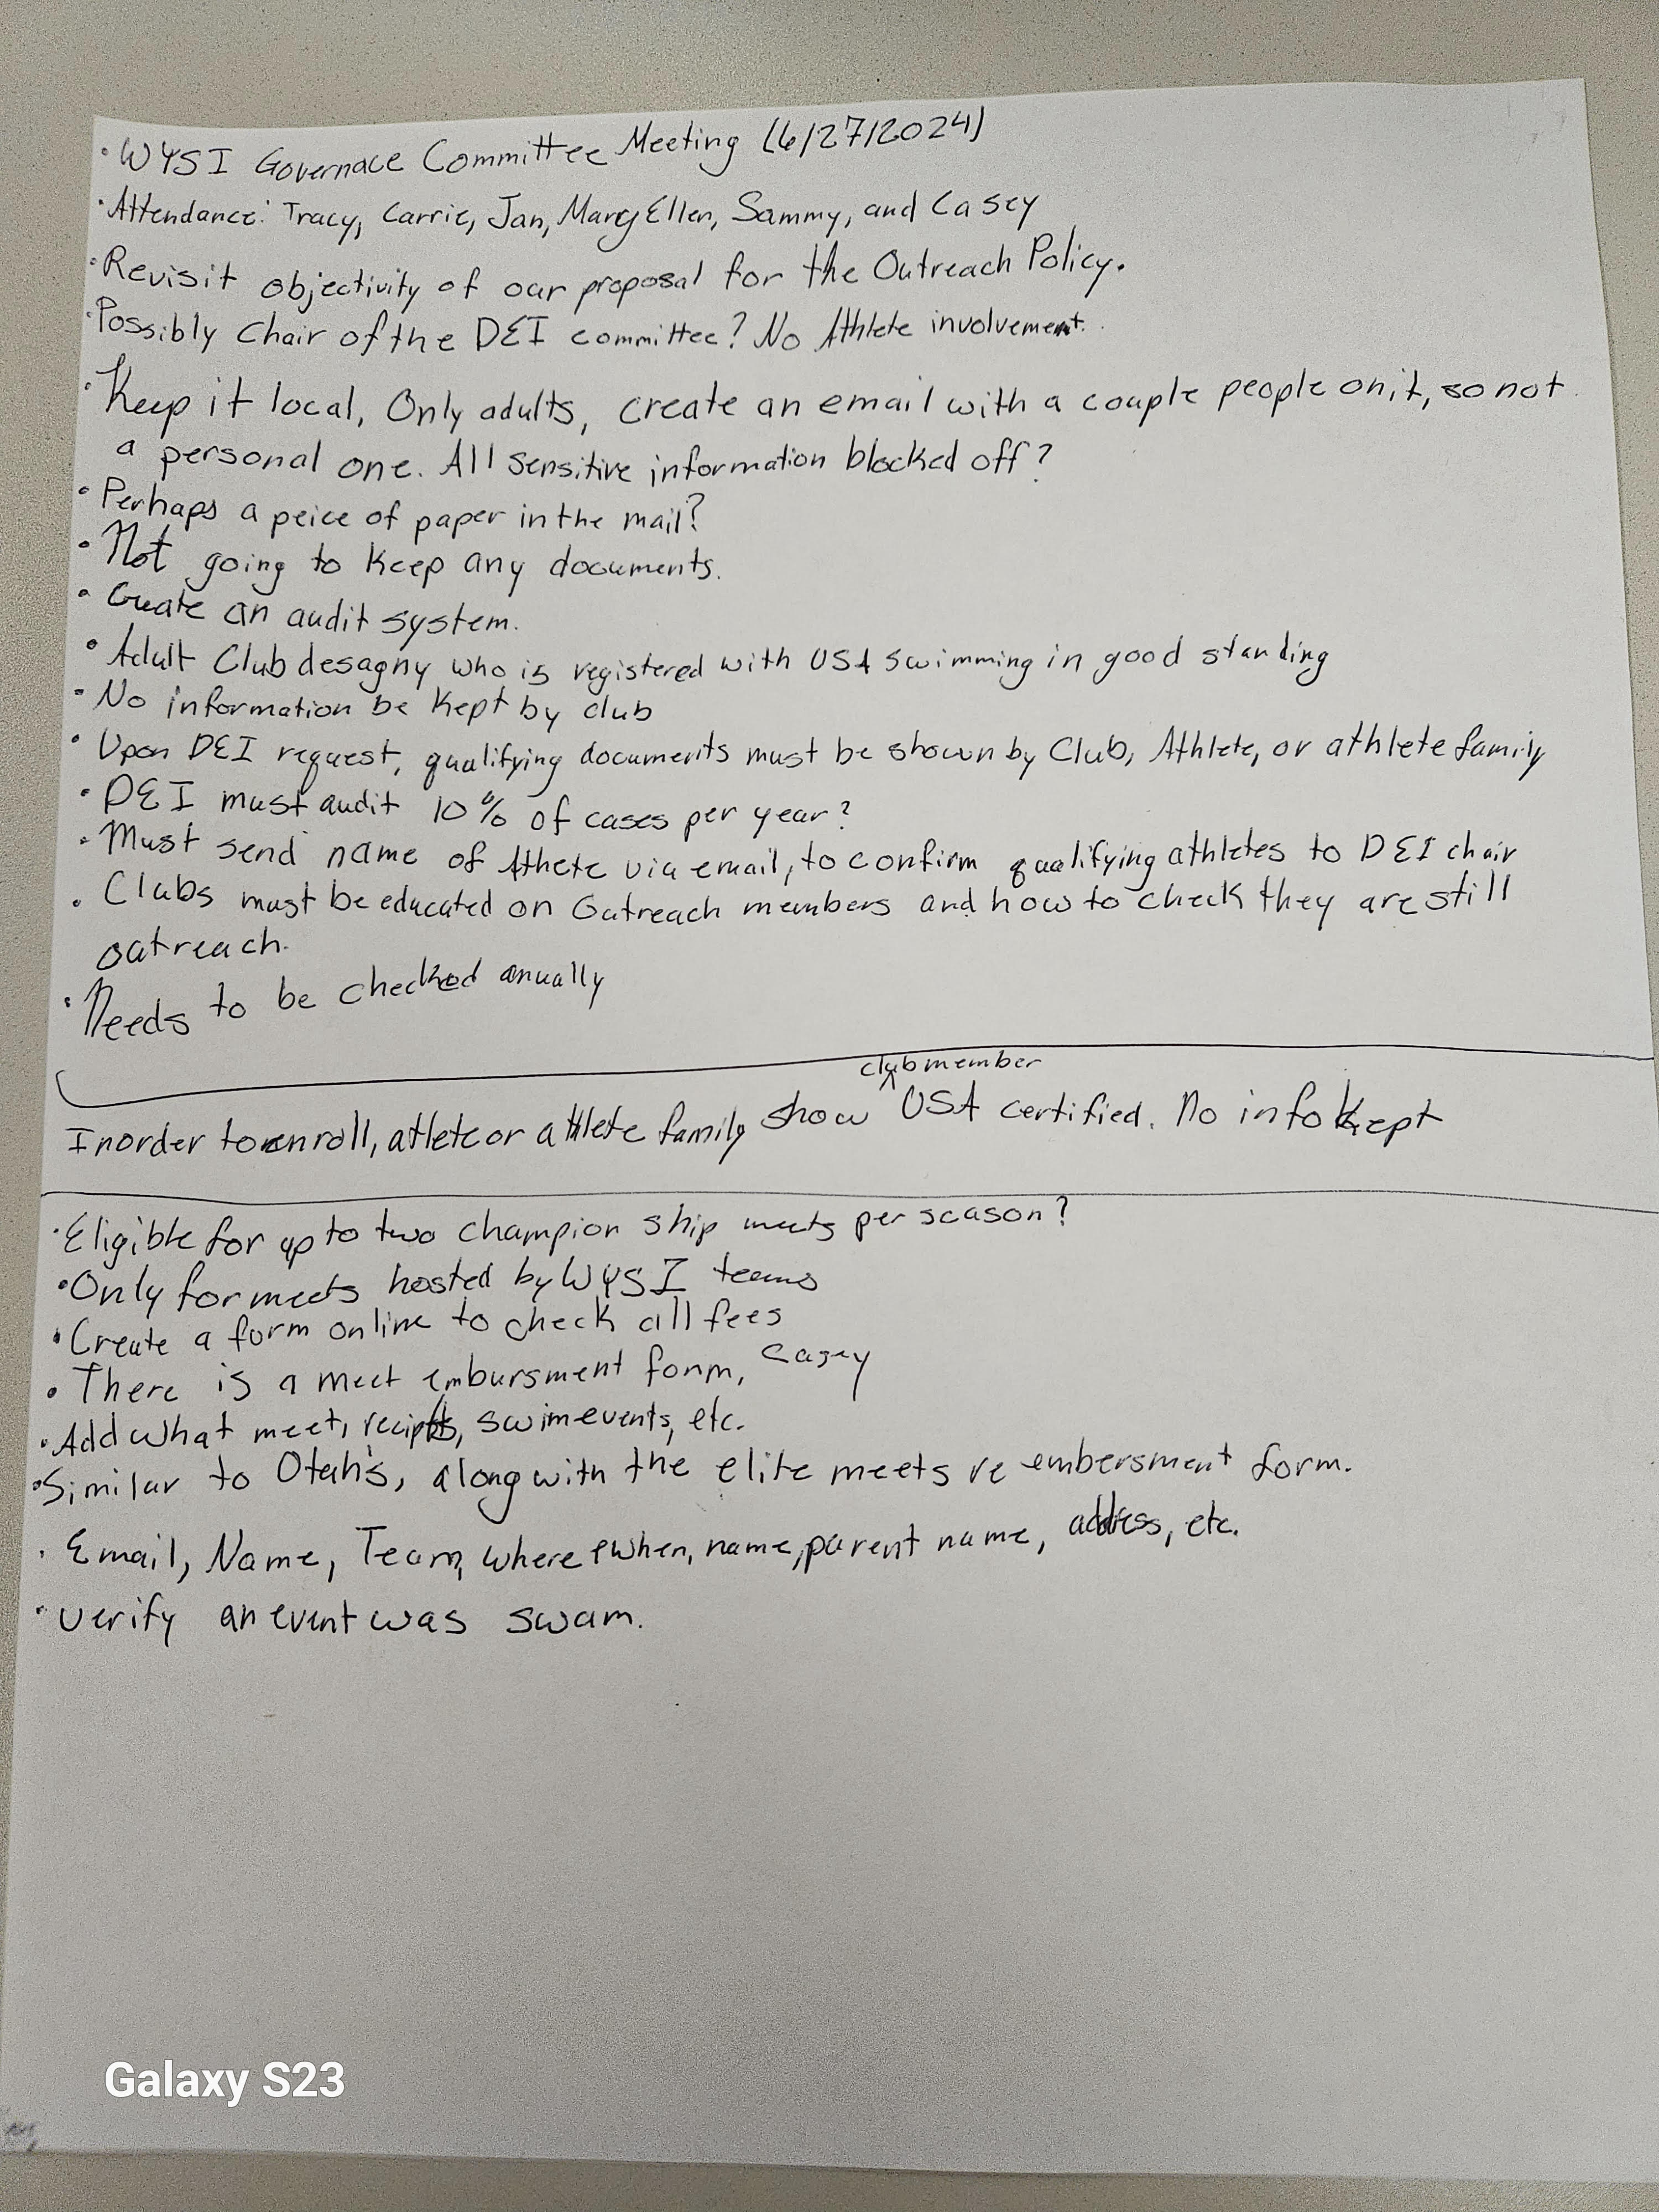 • WYSI Governace Committee Meeting (6/27/2024)
• Attendance: Tracy, Carrie, Jan, MaryEllen, Sammy, and Casey
• Revisit objectivity of our proposal for the Outreach Policy.
• Possibly Chair of the DEI committee? No Athlete involvement.
• Keep it local, Only adults, create an email with a couple people on it, so not
a personal one. All sensitive information blocked off?
• Perhaps a peice of paper in the mail?
• Not going to keep any documents.
• Create an audit system.
• Adult Club desagny who is registered with USA swimming in good standing
• No information be kept by club
• Upon DEI request, qualifying documents must be shown by Club, Athlete, or athlete family
• DEI must audit 10% of cases per year?
• Must send name of Athete via email, to confirm qualifying athletes to DEI chair
• Clubs must be educated on Outreach members and how to check they are still
outreach.
• Needs to be checked anually
club member
In order to enroll, atlete or athlete family show ^ USA certified. No info kept
• Eligible for up to two champion ship meets per season?
• Only for meets hosted by WYSI teams
• Create a form online to check all fees
• There is a meet embursment form, Casey
• Add what meet, recipts, swim events, etc.
• Similar to Utah's, along with the elite meets re embersment form.
• Email, Name, Team, where & when, name, parent name, address, etc.
• verify an event was swam.
Galaxy S23